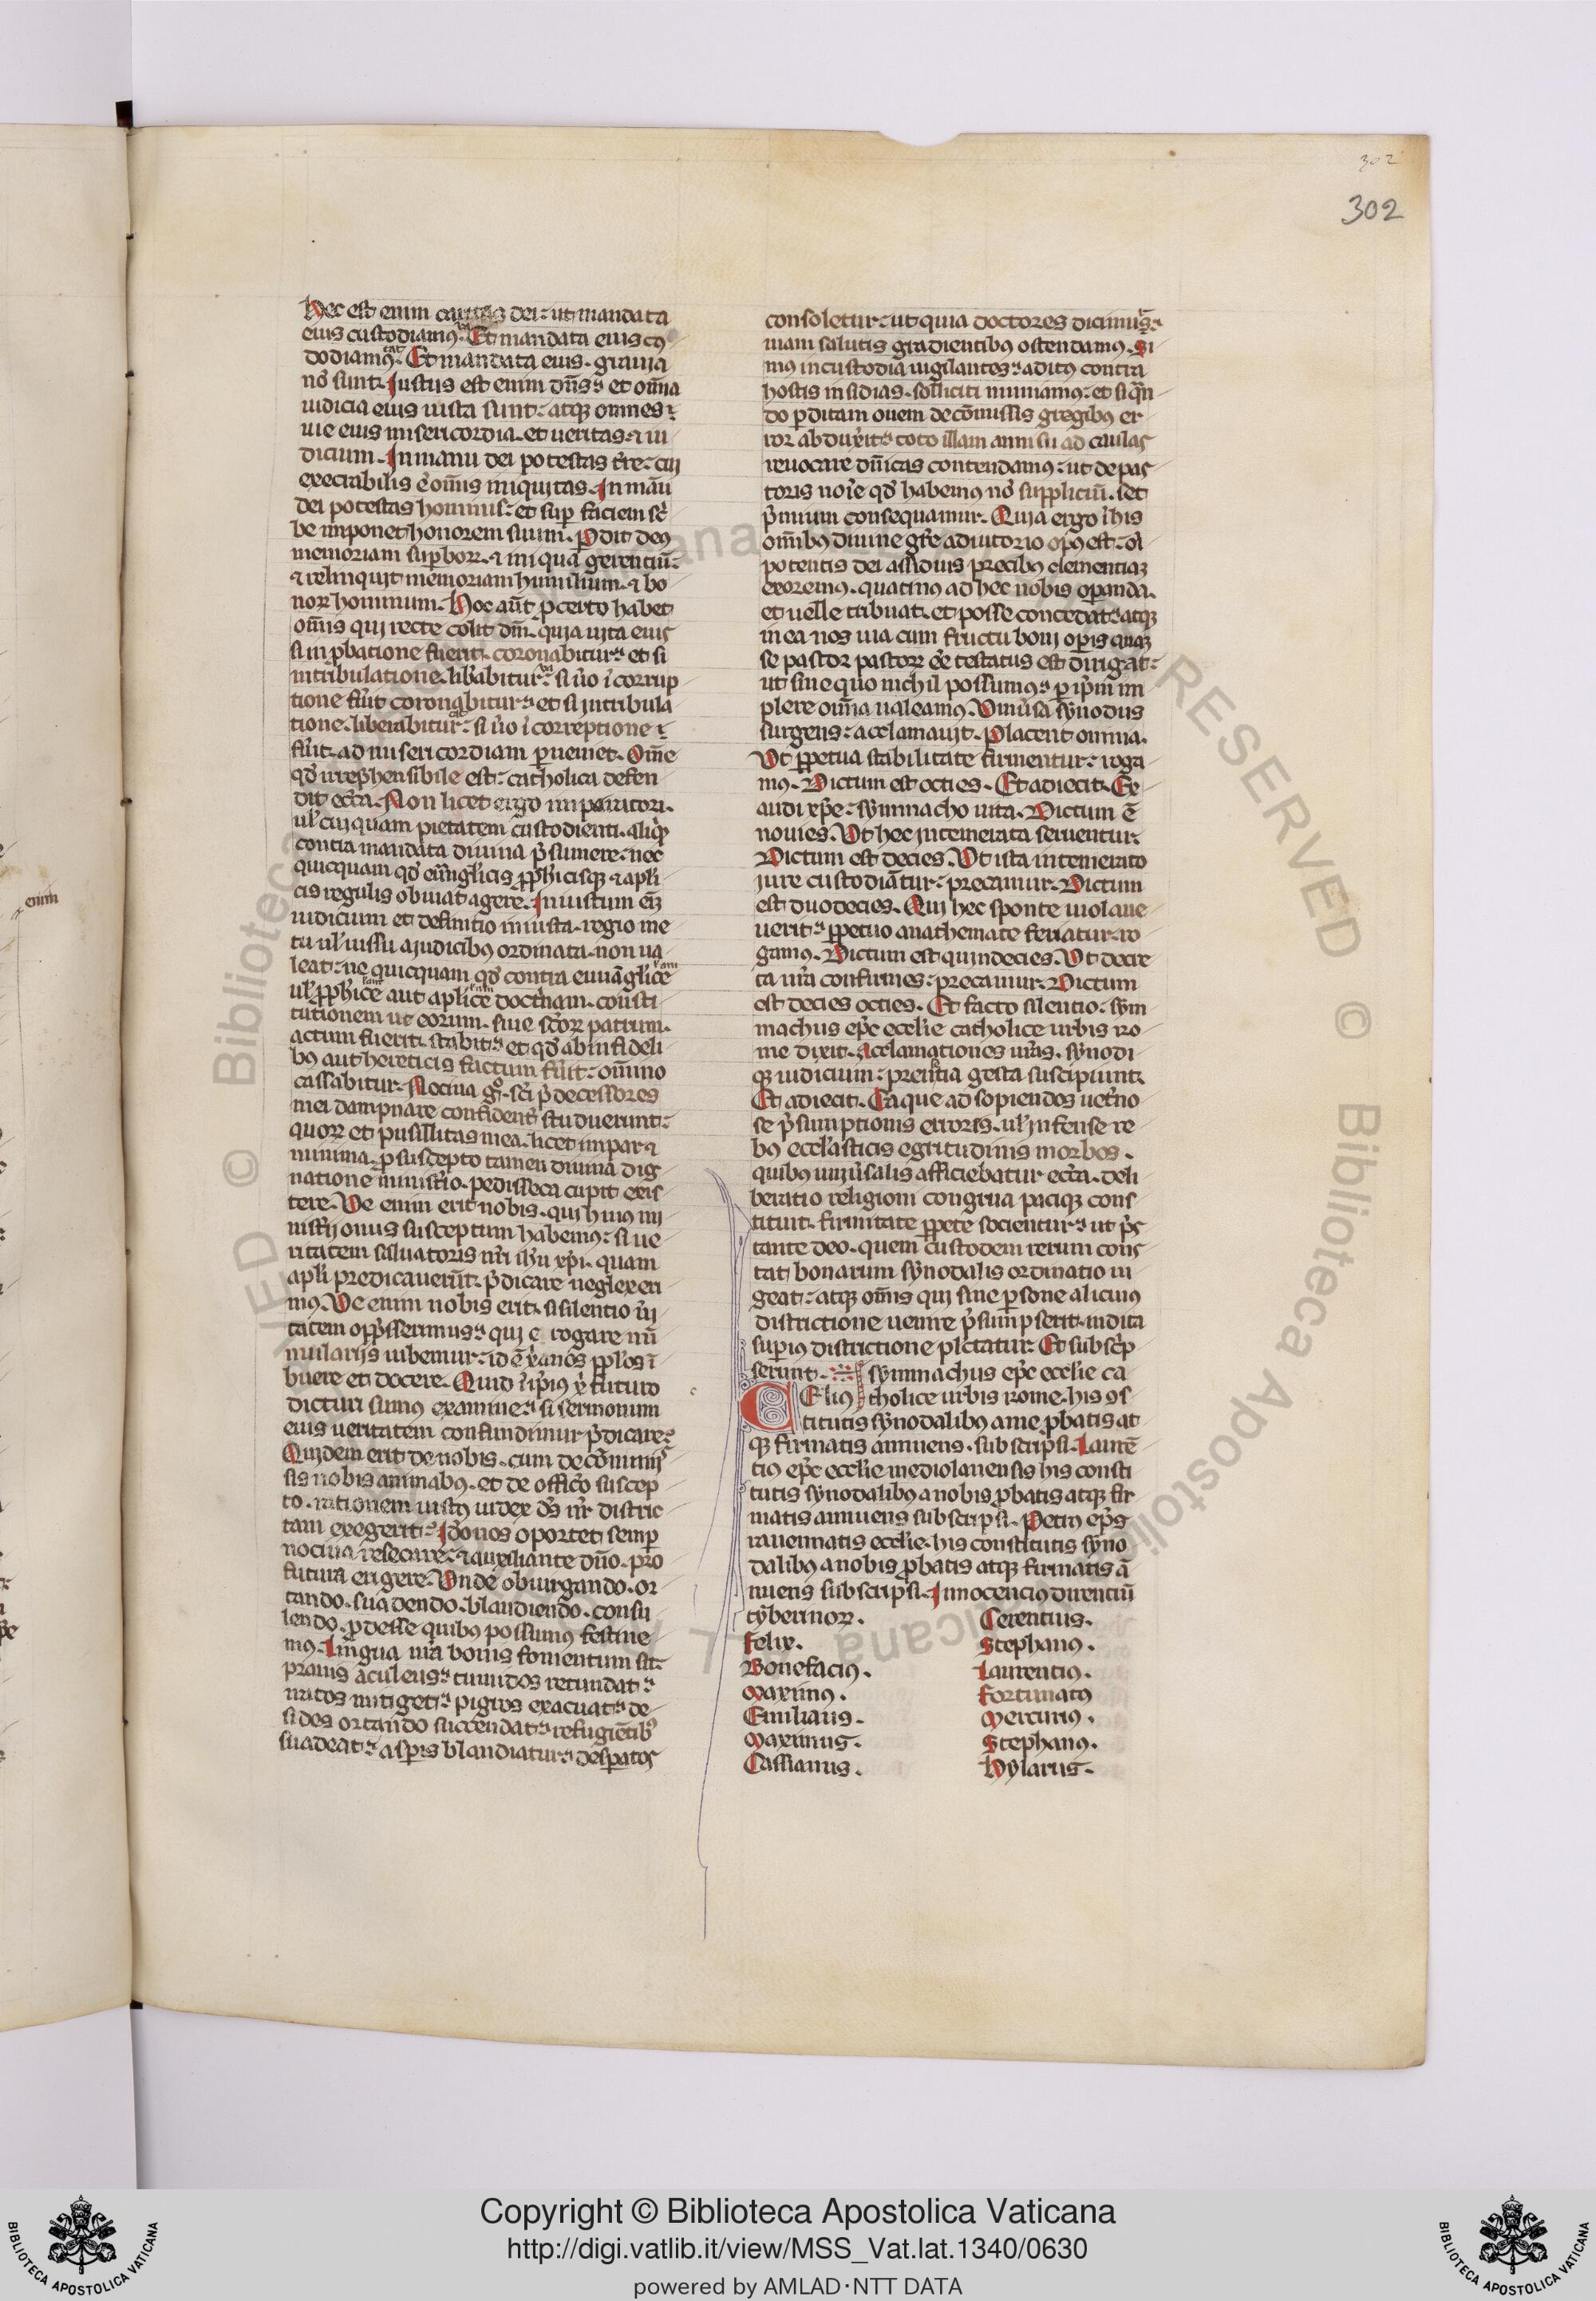 302
302
Hec est enim caritas dei: ut mandata
eius custodiamꝰ. Et mandata eius cꝰ
dodiamꝰ. Et mandata eius. grauia
nō sunt. Justus est enim dn̄s: et om̄a
iudicia eius iusta sunt: atqꝫ omnes
uie eius misericordia. et ueritas. ⁊ iu
dicium. In manu dei potestas tr̄e: cui
execrabilis ē om̄is iniquitas. In manu
dei potestas hominis: et suꝑ faciem sc̄
be imponet honorem suum. ꝑdit deꝰ
memoriam suꝑborꝝ. ⁊ iniqua gerentiū:
⁊ relinquit memoriam humilium. ⁊ bo
norꝝ hominum. Hoc aūt ꝓ certo habet
om̄is qui recte colit dm̄. quia uita eius
si in ꝓbatione fuerit. coronabitur: et si
in tribulatione. lib̄abitur: si ūo ī corrup
tione fūit coronabitur: et si in tribula
tione. liberabitur: si ūo ī correptione
fūit. ad misericordiam ꝑueniet. Om̄e
qd̄ irrep̄hensibile est: catholica defen
dit ecc̄a. Non licet ergo imperatori.
ul̓ cuiquam pietatem custodienti. aliqͥd
contra mandata diuina p̄sumere: nec
quicquam qd̄ euāgl̓icis ꝓph̓icisqꝫ ⁊ apl̓i
cis regulis obuiat agere. Iniustum eī
iudicium et definitio iniusta. regio me
tu ul̓ iussu a iudicibꝰ ordinata. non ua
leat: ne quicquam qd̄ contra euuāgl̓ice
ul̓ ꝓph̓ice aut apl̓ice doctͥnam. consti
tutionem ue eorum. siue sc̄orꝝ patrum.
actum fuerit. stabit: et qd̄ ab infideli
bꝰ aut hereticis factum fūit: om̄ino
cassabitur. Nociua gͦ. sc̄i p̄decessores
mei dampnare confident̄ studuerunt:
quorꝝ et pusillitas mea. licet impar ⁊
minima. ꝓ suscepto tamen diuina dig
natione minist̄io. pedisseca cupit exis
tere. Ve enim erit nobis. qui huiꝰ mi
nist̓ij onus susceptum habemꝰ: si ue
ritatem saluatoris nr̄i ih̓u xp̄i. quam
apl̓i predicauerūt. p̄dicare neglexeri
mꝰ. Ve enim nobis erit. si silentio ūi
tatem opp̄sserimus: qui erogare nū
mularijs iubemur: id ē xp̄ianos ppl̓os ī
buere et docere. Quid ī ip̄ius xp̄i futuro
dicturi sumꝰ examine: si sermonum
eius ueritatem confundimur p̄dicare:
Quidem erit de nobis. cum de cōmmis
sis nobis animabꝰ. et de offic̄o suscep
to. rationem iustꝰ iudex ds̄ nr̄ distric
tam exegerit: Id̄o nos oportet semꝑ
nociua resecare: ⁊ auxiliante dn̄o. pro
futura erigere. Vnde obiurgando. or
tando. suadendo. blandiendo. consu
lendo. ꝓdesse quibꝰ possumꝰ festine
mꝰ. Lingua nr̄a bonis fomentum sit:
prauis aculeus: tumidos retundat:
iratos mitiget: pigros exacuat: de
sides ortando succendat: refugiētibꝰ
suadeat: asꝑis blandiatur: desꝑatos
consoletur: ut quia doctores dicimur:
uiam salutis gradientibꝰ ostendamꝰ. Si
mꝰ in custodia uigilantes: aditꝰ contra
hostis insidias. solliciti muniamꝰ: et si qn̄
do ꝑditam ouem de cōmissis gregibꝰ er
ror abduxit: toto illam annisu ad caulas
reuocare dn̄icas contendamꝰ: ut de pas
toris noīe qd̄ habemꝰ nō suppliciū. set
p̄mium consequamur. Quia ergo ī his
om̄ibꝰ diuine gr̄e adiutorio opꝰ est: oī
potentis dei assiduis precibꝰ clementiaꝫ
exoremꝰ. quatinꝰ ad hec nobis oꝑanda.
et uelle tribuat. et posse concedat: atqꝫ
in ea nos uia cum fructu boni oꝑis quaꝫ
se pastor pastorꝝ eē testatus est dirigat:
ut sine quo nichil possumꝰ: ꝑ ip̄m im
plere om̄ia ualeamꝰ. Vniūsa synodus
surgens: acclamauit. Placent omnia.
Vt ꝑpetua stabilitate firmentur: roga
mꝰ. Dictum est octies. Et adiecit. Ex
audi xp̄e: symmacho uita. Dictum ē
nouies. Vt hec intemerata seruentur.
Dictum est decies. Vt ista intemerato
iure custodiātur: precamur. Dictum
est duodecies. Qui hec sponte uiolaue
uerit: ꝑpetuo anathemate feriatur. ro
gamꝰ. Dictum est quindecies. Vt decre
ta nr̄a confirmes: precamur. Dictum
est decies octies. Et facto silentio: sym
machus ep̄c eccl̓ie catholice urbis ro
me dixit. Acclamationes ur̄as. synodi
qꝫ iudicium: presentia gesta suscipiunt.
Et adiecit. Ea que ad sopiendos uet̄no
se p̄sumptionis errores. ul̓ infense re
bꝰ eccl̓asticis egritudinis morbos.
quibus uniūsalis afficiebatur ecc̄a. deli
beratio religioni congrua paciqꝫ cons
tituit. firmitate ꝑpete socientur: ut p̄s
tante deo. quem custodem rerum cons
tat bonarum synodalis ordinatio ui
geat: atqꝫ om̄is qui sine ꝑsone alicuiꝰ
districtione uenire p̄sumpserit. indita
suꝑiꝰ districtione plctatur: Et subsc̄p
serunt. symmachus ep̄c eccl̓ie ca
CEliꝰ tholice urbis rome. his ꝯs
titutis synodalibꝰ a me ꝓbatis at
qꝫ firmatis annuens. subscripsi. Laurē
tiꝰ ep̄c eccl̓ie mediolanensis his consti
tutis synodalibꝰ a nobis ꝓbatis atqꝫ fir
matis annuens subscripsi. Petrꝰ ep̄s
rauennatis eccl̓ie. his constitutis syno
dalibꝰ a nobis ꝓbatis atqꝫ firmatis ā
nuens subscripsi. Innocenciꝰ
tyberinorꝝ. Terentius.
Felix. Stephanꝰ.
Bonefaciꝰ. Laurentiꝰ.
Maximꝰ. Fortunatꝰ
Emilianus. Mercuriꝰ.
Maximus. Stephanꝰ.
Cassianus. Hylarus.
enim
Copyright © Biblioteca Apostolica Vaticana
http://digi.vatlib.it/view/MSS_Vat.lat.1340/0630
powered by AMLAD·NTT DATA
BIBLIOTECA APOSTOLICA VATICANA
BIBLIOTECA APOSTOLICA VATICANA